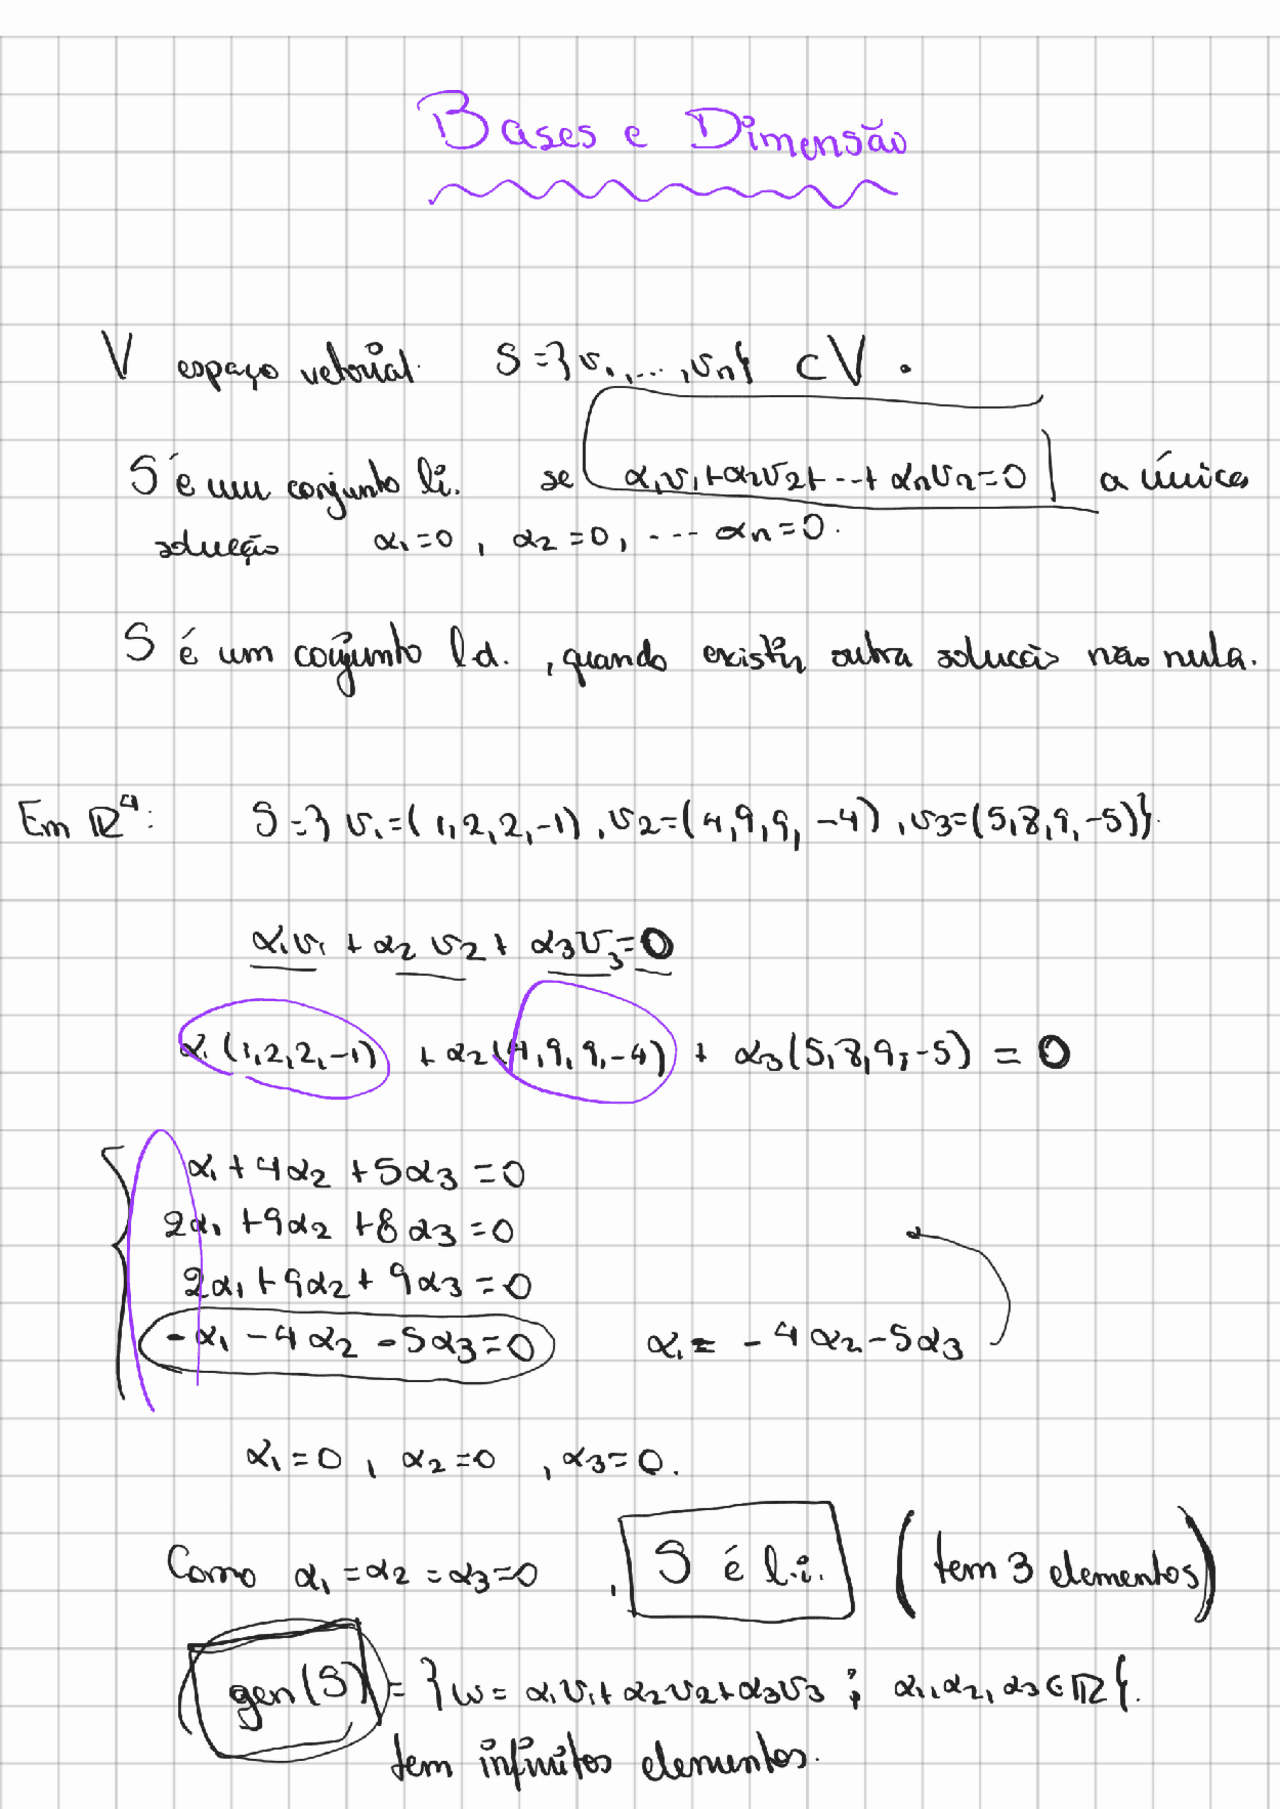 Bases e Dimensão
V espaço vetorial. S=}v₁,...,vₙ{ ⊂V.
S é um conjunto li. se α₁v₁+α₂v₂+...+αₙvₙ=0 a única
solução α₁=0, α₂=0, ... αₙ=0.
S é um conjunto ld., quando existir outra solução não nula.
Em ℝ⁴: S=} v₁=(1,2,2,-1), v₂=(4,9,9,-4), v₃=(5,8,9,-5)}.
α₁v₁ + α₂v₂ + α₃v₃=0
α₁(1,2,2,-1) + α₂(4,9,9,-4) + α₃(5,8,9,-5) = 0
α₁+4α₂+5α₃=0
2α₁+9α₂+8α₃=0
2α₁+9α₂+9α₃=0
-α₁-4α₂-5α₃=0 α₁= -4α₂-5α₃
α₁=0, α₂=0, α₃=0.
Como α₁=α₂=α₃=0, S é l.i. (tem 3 elementos)
gen(S) = }w= α₁v₁+α₂v₂+α₃v₃ ; α₁,α₂,α₃∈ℝ{.
tem infinitos elementos.